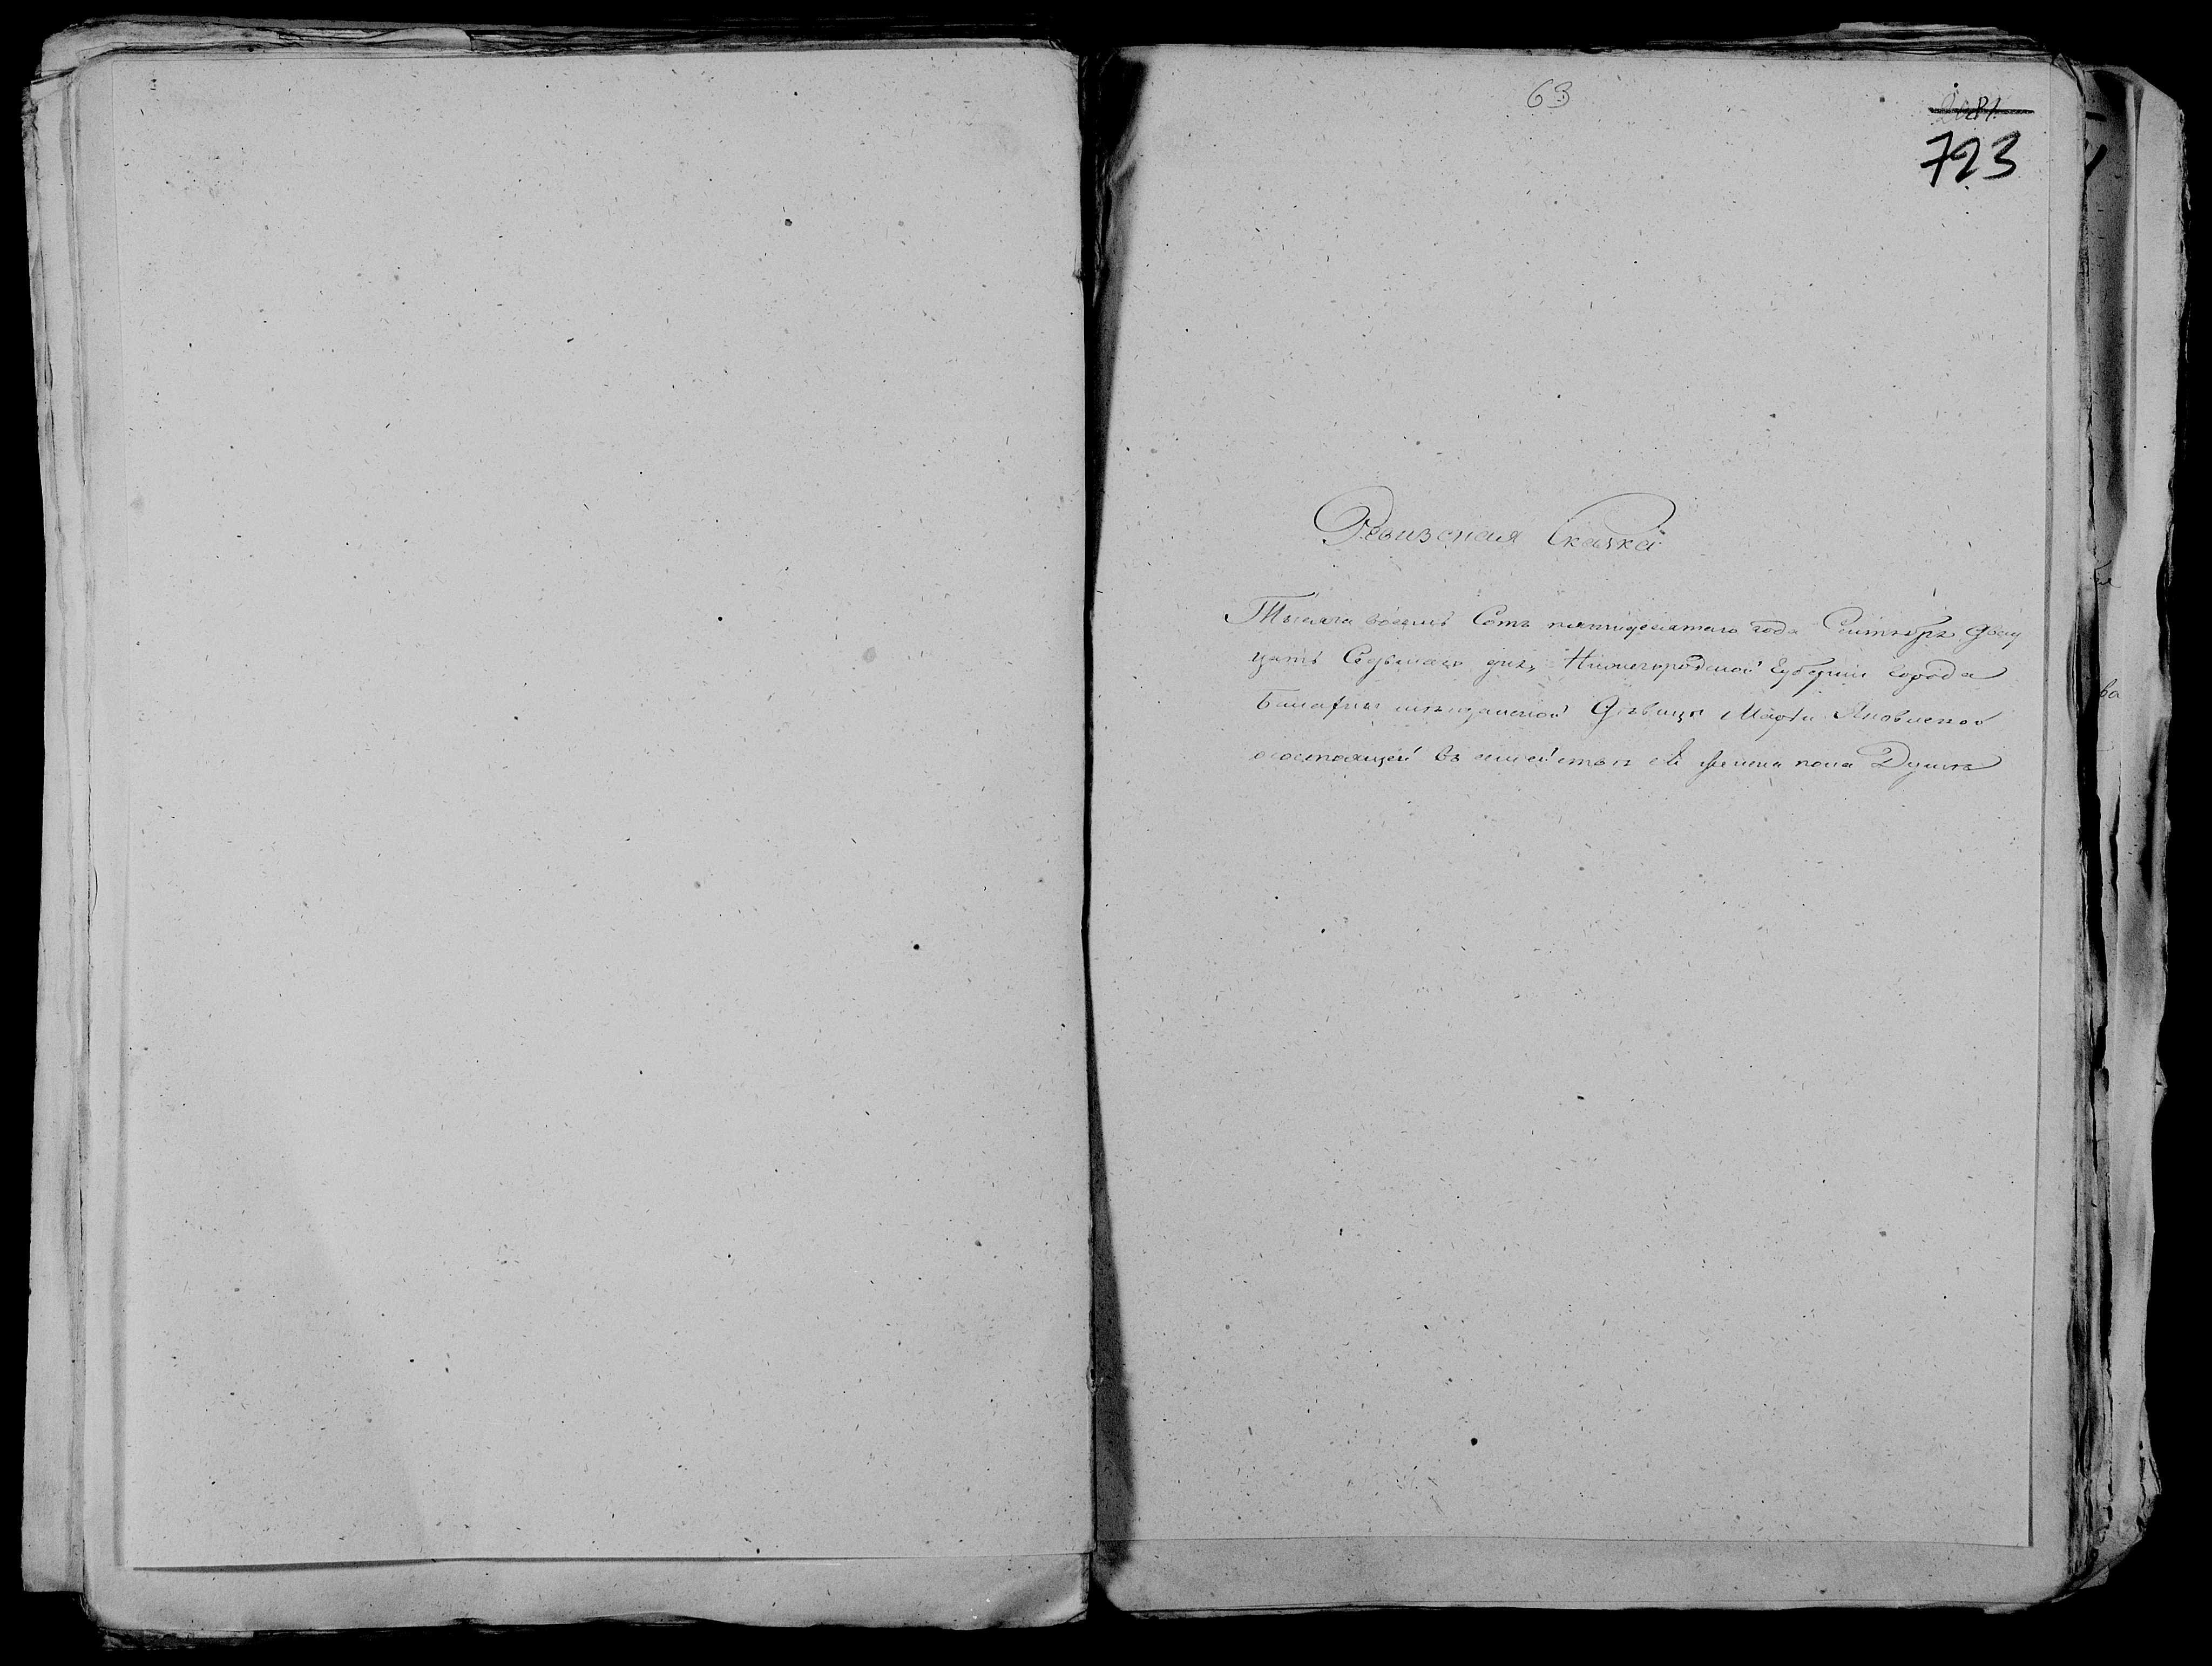 63
723
Ревизская Сказка
Тысяча восемь Сотъ пятидесятаго года Сентября два
цать Седьмаго дня Нижегородской Губерніи города
Балахны мѣщанской Дѣвицы Марфы Яковлевой
состоящей въ семействѣ женска пола Душъ
ва